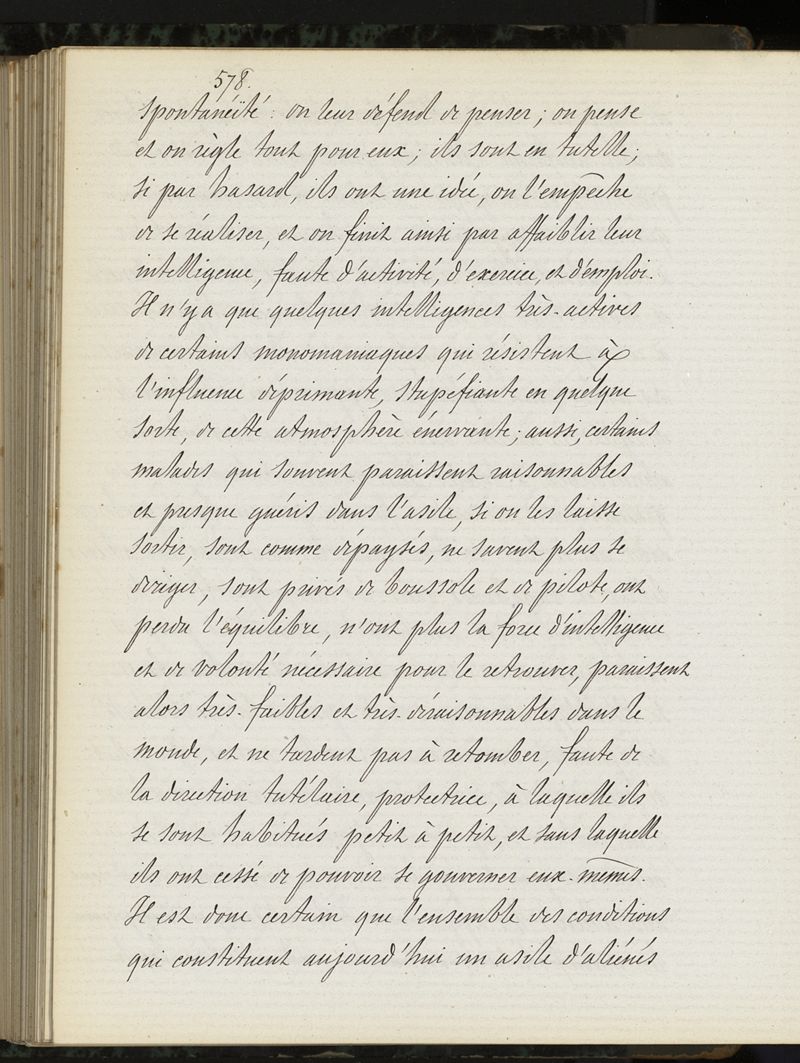 578.
spontanéité : on leur défend de penser ; on pense
et on règle tout pour eux ; ils sont en tutelle ;
si par hasard, ils ont une idée, on l'empêche
de se réaliser, et on finit ainsi par affaiblir leur
intelligence, faute d'activité, d'exercice, et d'emploi.
Il n'y a que quelques intelligences très-actives
de certains monomaniaques qui résistent à
l'influence déprimante, stupéfiante en quelque
sorte, de cette atmosphère énervante ; aussi, certains
malades qui souvent paraissent raisonnables
et presque guéris dans l'asile, si on les laisse
sortir, sont comme dépaysés, ne savent plus se
diriger, sont privés de boussole et de pilote, ont
perdu l'équilibre, n'ont plus la force d'intelligence
et de volonté nécessaire pour le retrouver, paraissent
alors très-faibles et très-déraisonnables dans le
monde, et ne tardent pas à retomber, faute de
la direction tutélaire, protectrice, à laquelle ils
se sont habitués petit à petit, et sans laquelle
ils ont cessé de pouvoir se gouverner eux-mêmes.
Il est donc certain que l'ensemble des conditions
qui constituent aujourd'hui un asile d'aliénés